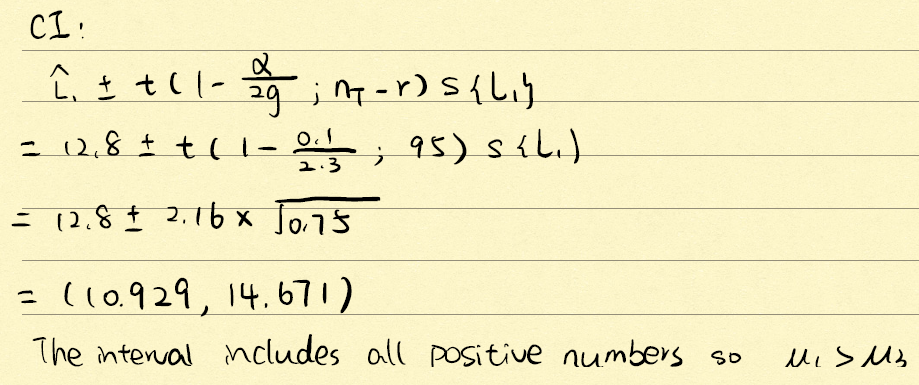 CI:
L̂₁ ± t(1 - α/2g ; n_T - r) s{L₁}
= 12.8 ± t(1 - 0.1/2·3 ; 95) s{L₁)
= 12.8 ± 2.16 × √0.75
= (10.929, 14.671)
The interval includes all positive numbers so μ₁ > μ₃